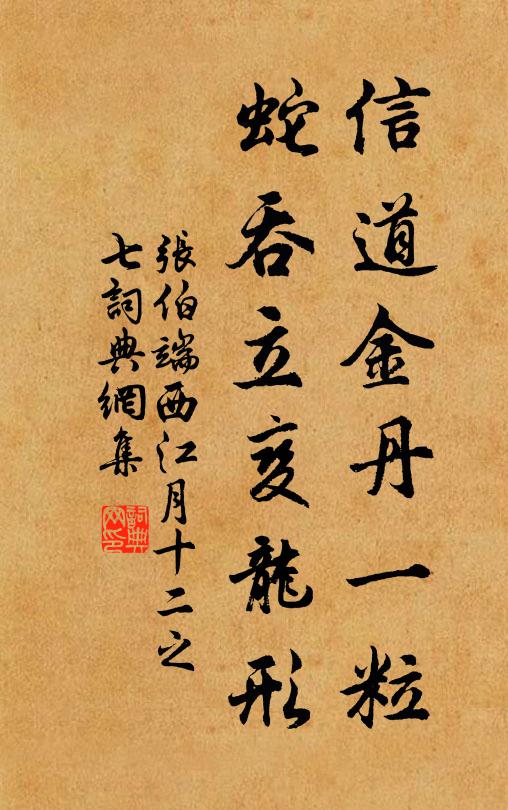 信道金丹一粒
蛇吞立变龍形
張伯端西江月十二之
七詞典網集
詞典
网印